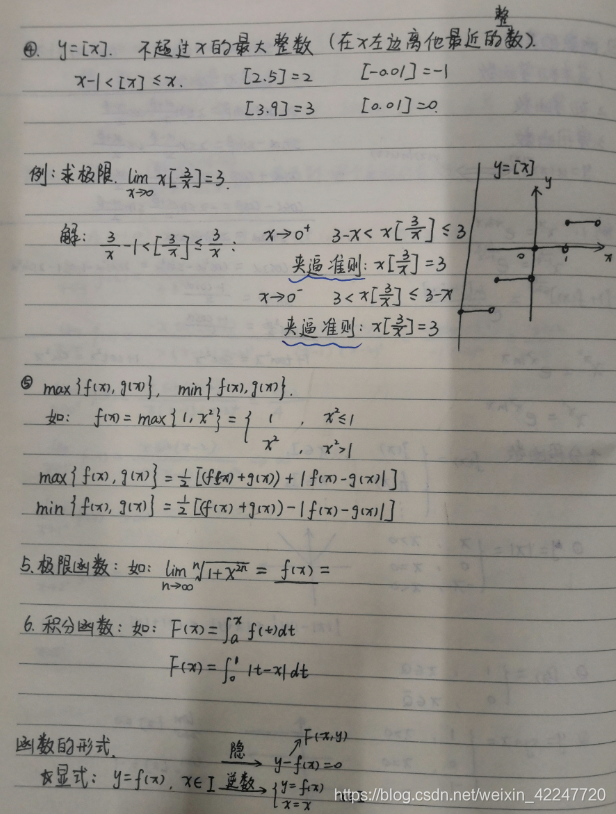 整
④. y=[x]. 不超过x的最大整数 (在x左边离他最近的数).
x-1<[x]≤x. [2.5]=2 [-0.01]=-1
[3.9]=3 [0.01]=0.
例:求极限. lim x→0 x[3/x]=3.
y=[x]
y
解: 3/x -1<[3/x]≤3/x : x→0⁺ 3-x<x[3/x]≤3
0 1 x
夹逼准则: x[3/x]=3
x→0⁻ 3<x[3/x]≤3-x
夹逼准则: x[3/x]=3
⑤ max{f(x), g(x)}, min{f(x), g(x)}.
如: f(x)=max{1, x²}={ 1 , x²≤1
x² , x²>1
max{f(x), g(x)}=½[(f(x)+g(x))+|f(x)-g(x)|]
min{f(x), g(x)}=½[(f(x)+g(x))-|f(x)-g(x)|]
5.极限函数:如: lim n→∞ ⁿ√1+x²ⁿ = f(x)=
6.积分函数:如: F(x)=∫ₐˣ f(t)dt
F(x)=∫₀¹ |t-x|dt
函数的形式. 隐→ y-f(x)=0 ↗F(x,y)
显式: y=f(x), x∈I 逆数→ {y=f(x)
x=x
https://blog.csdn.net/weixin_42247720